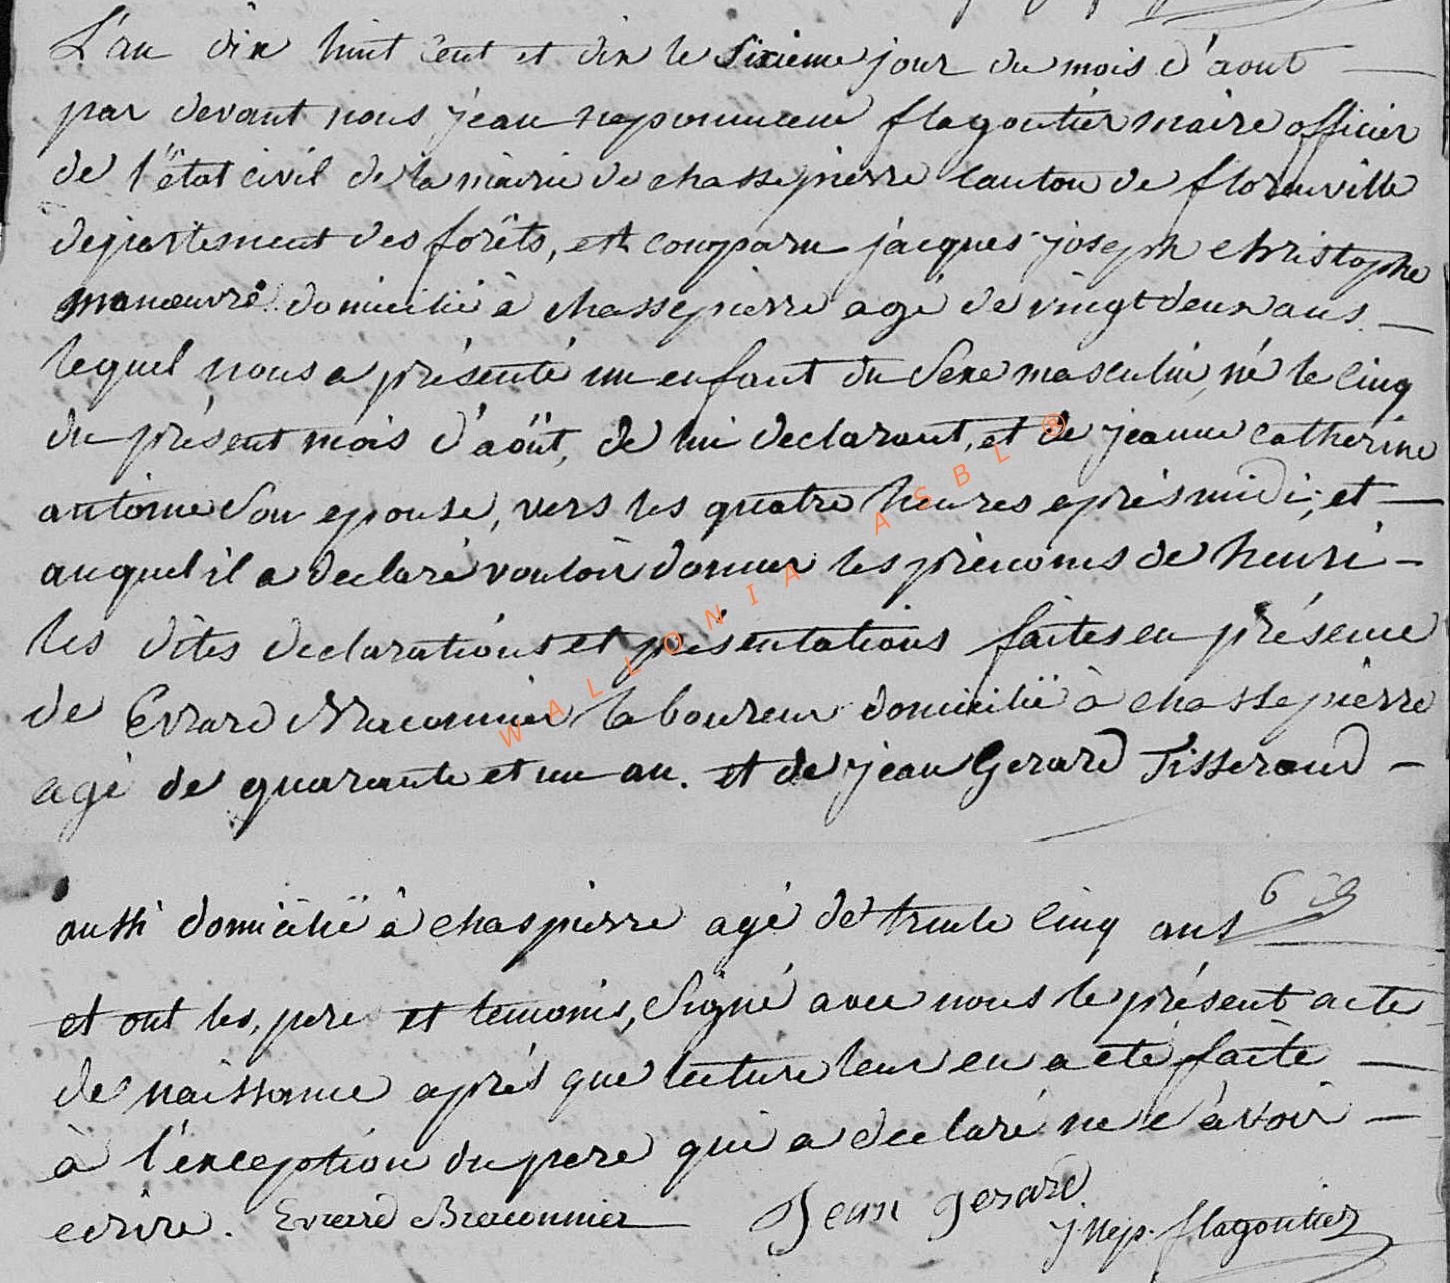 L'an dix huit cent et dix le Sixieme jour du mois d'aout
par devant nous jean nepomucene flagoutier maire officier
de l'état civil de la mairie de chassepierre canton de florenville
departement des forêts, est comparu jacques joseph christophe
manœuvre domicilié à chassepierre agé de vingt deux ans
lequel nous a présenté un enfant du Sexe masculin, né le cinq
du présent mois d'août, de lui declarant, et de jeanne catherine
antoine Son epouse, vers les quatre heures après midi, et
auquel il a declaré vouloir donner les prénoms de henri
les dites declarations et présentations faites en présence
de Evrard Braconnier laboureur domicilié à chassepierre
agé de quarante et un an. et de jean Gerard Tisserand
WALLONIA ASBL ®
aussi domicilié à chaspierre agé de trente cinq ans
et ont les, pere et temoins, Signé avec nous le présent acte
de naissance après que lecture leur en a eté faite
à l'éxception du pere qui a declaré ne çavoir
ecrire. Evrard Braconnier Jean gerard
j. nep. flagoutier